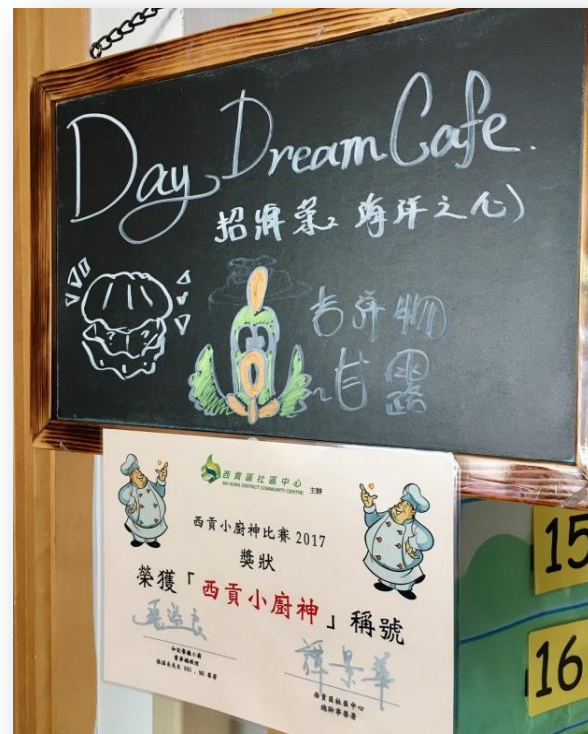 Day Dream Cafe.
招牌菜：海洋之心)
吉祥物
~甘露
西貢區社區中心 主辦
SAI KUNG DISTRICT COMMUNITY CENTRE
西貢小廚神比賽 2017
獎狀
榮獲「西貢小廚神」稱號
譚景華
西貢區社區中心
總幹事簽署
15
16